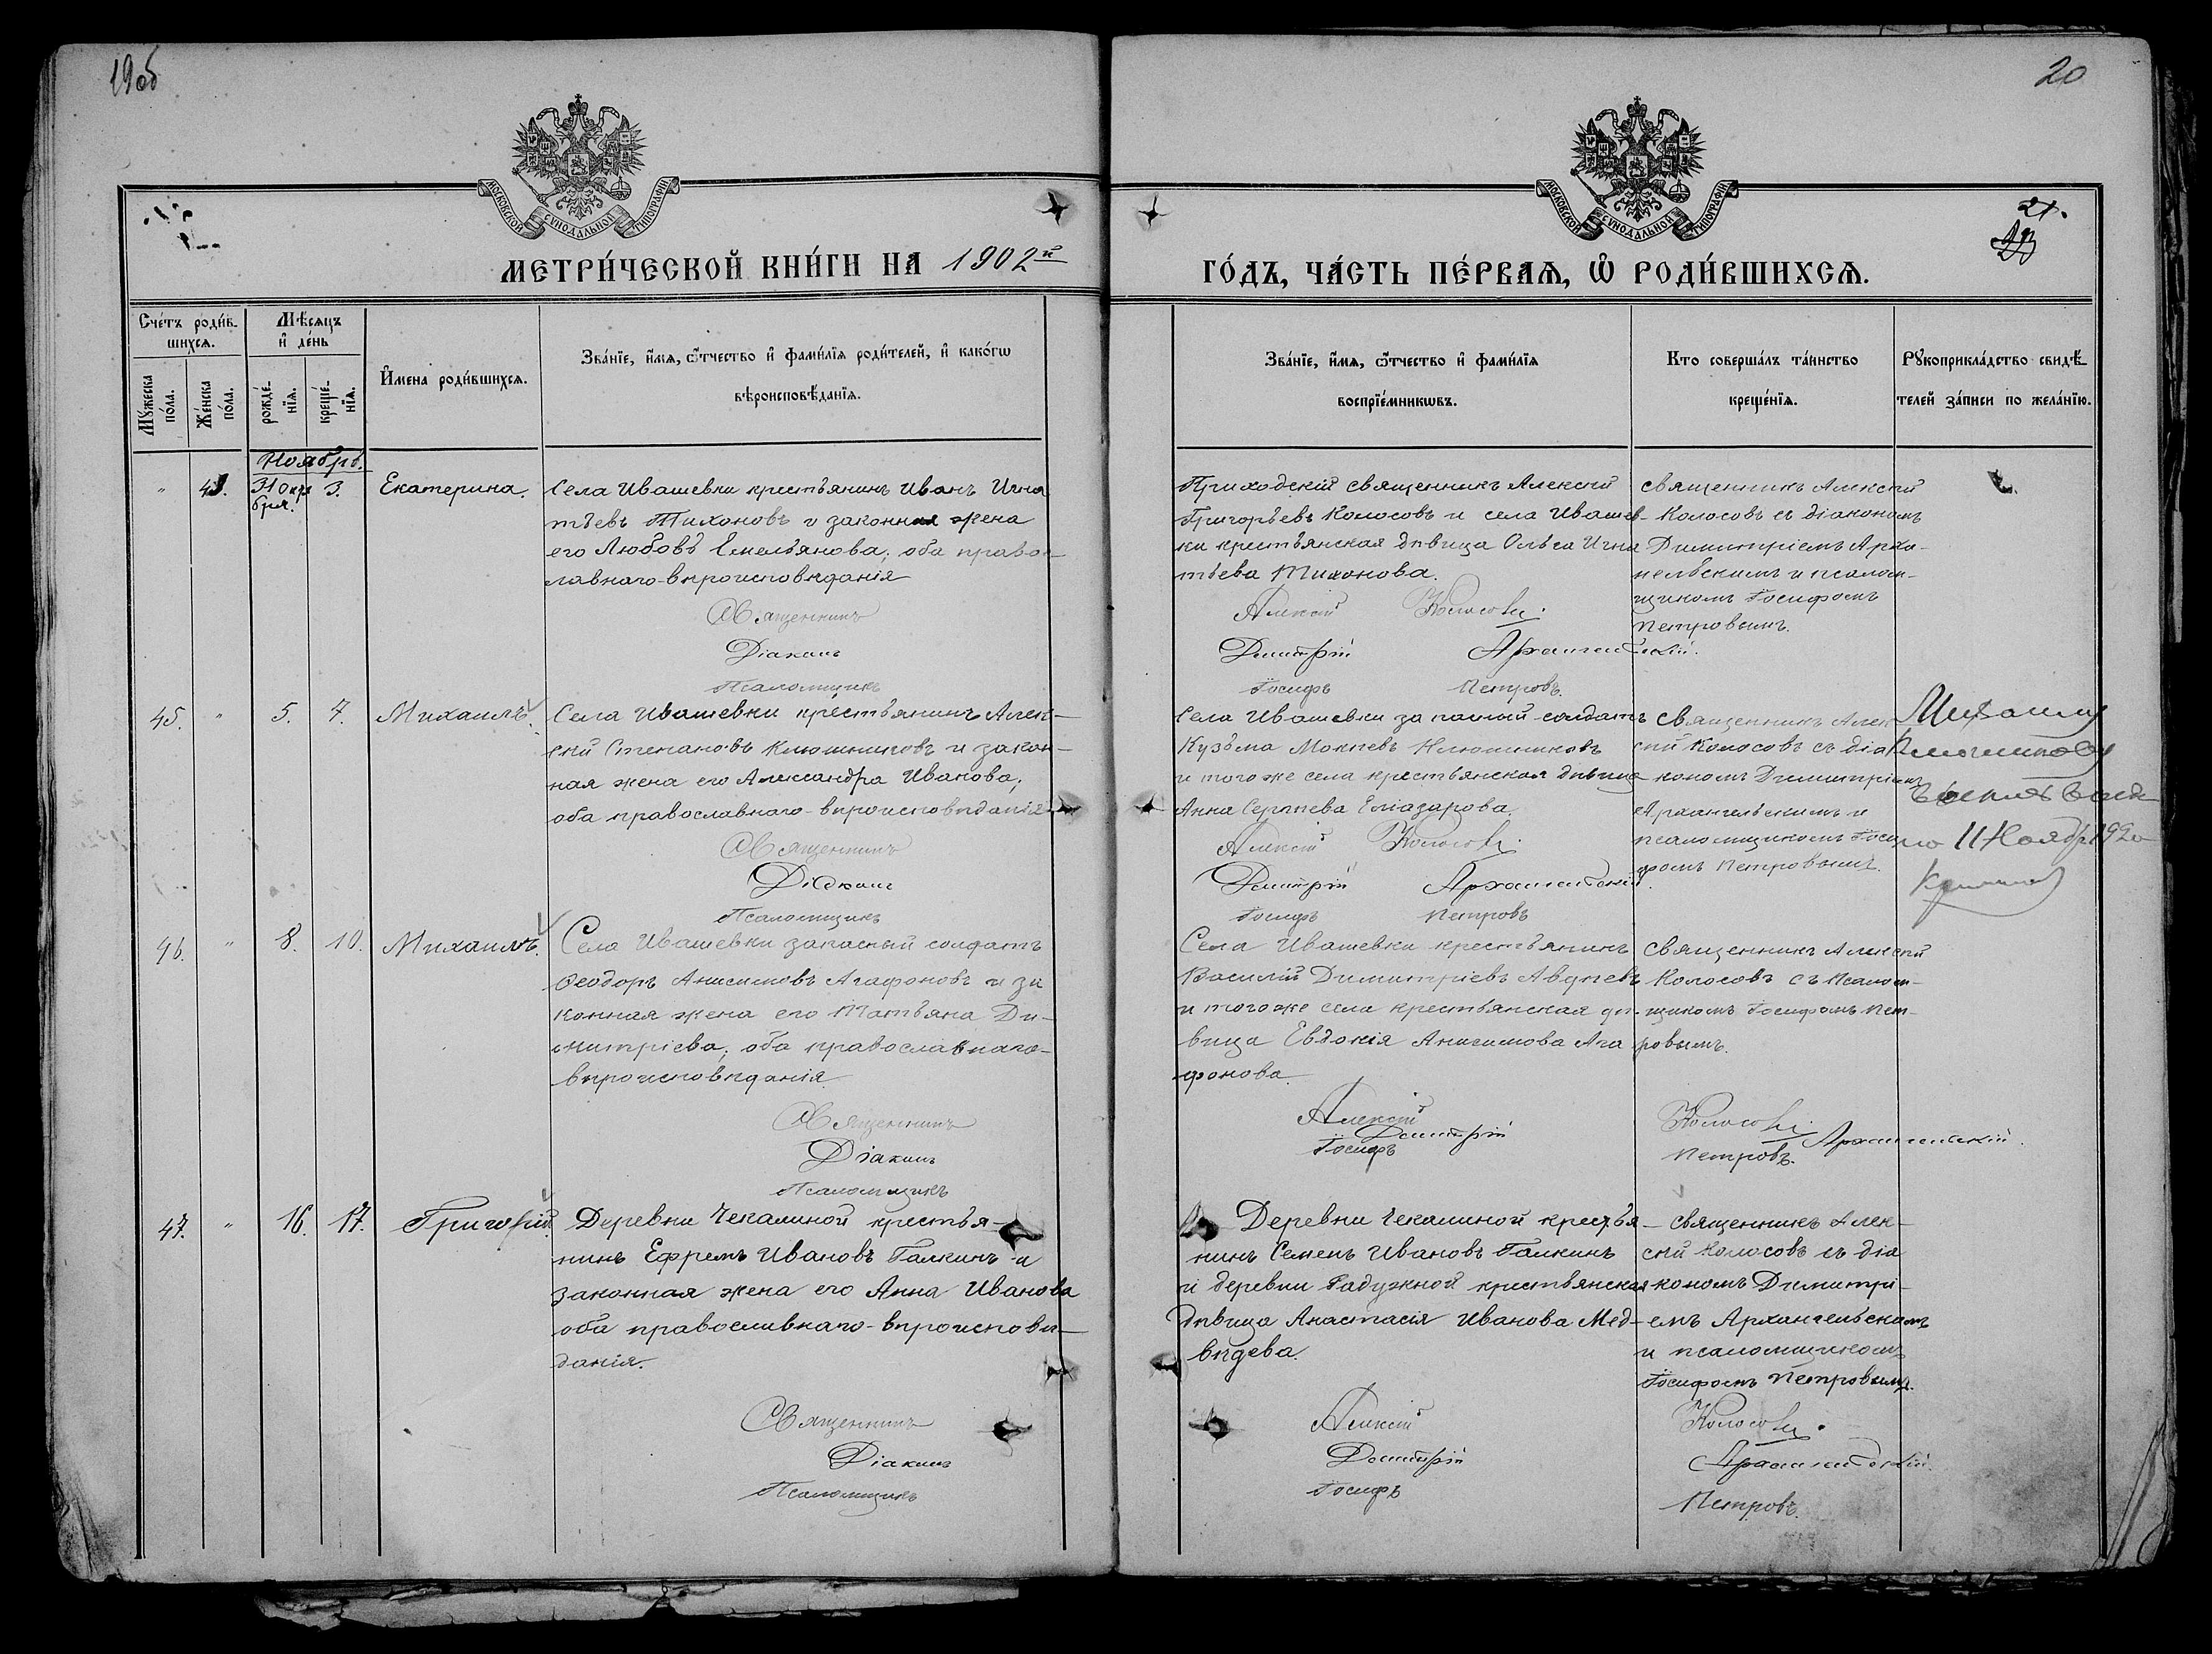 20
МОСКОВСКОЙ СУНОДАЛЬНОЙ ТИПОГРАФІИ
МОСКОВСКОЙ СУНОДАЛЬНОЙ ТИПОГРАФІИ
21.
МЕТРИ́ЧЕСКОЙ КНИ́ГИ НА 1902й
ГО́ДЪ, ЧА́СТЬ ПЕ́РВАѦ, Ѡ РОДИ́ВШИХСѦ.
Сче́тъ роди́в-
шихсѧ.
Мѣ́сѧцъ
и҆ де́нь
Мꙋ́жеска
по́ла.
Же́нска
по́ла.
рожде́-
нїѧ.
креще́-
нїѧ.
И҆́мена роди́вшихсѧ.
Зва́нїе, и҆́мѧ, ѻ҆́тчество и҆ фами́лїѧ роди́телей, и҆ како́гѡ
вѣроисповѣ́данїѧ.
Зва́нїе, и҆́мѧ, ѻ҆́тчество и҆ фами́лїѧ
воспрїе́мникѡвъ.
Кто соверша́лъ та́инство
креще́нїѧ.
Рꙋкоприкла́дство свидѣ́-
телей за́писи по жела́нїю.
Ноябрь.
" 43. 31 Октя
бря. 3. Екатерина.
Села Ивашевки крестьянинъ Иванъ Игна
тьевъ Тихоновъ и законная жена
его Любовь Емельянова; оба правос-
лавнаго вѣроисповѣданія
Священникъ
Діаконъ
Псаломщикъ
Приходскій священникъ Алексій
Григорьевъ Колосовъ и села Ивашев-
ки крестьянская дѣвица Ольга Игна
тьева Тихонова.
Алексій Колосовъ.
Димитрій Архангельскій.
Іосифъ Петровъ.
Священникъ Алексій
Колосовъ съ діакономъ
Димитріемъ Арха-
нельскимъ и псалом-
щикомъ Іосифомъ
Петровымъ.
45. " 5. 7. Михаилъ.
Села Ивашевки крестьянинъ Алек-
сій Степановъ Клюшниковъ и закон-
ная жена его Александра Иванова;
оба православнаго вѣроисповѣданія
Священникъ
Діаконъ
Псаломщикъ
Села Ивашевки запасный солдатъ
Кузьма Мокіевъ Клюшниковъ
и того же села крестьянская дѣвица
Анна Сергѣева Еліазарова.
Алексій Колосовъ.
Димитрій Архангельскій.
Іосифъ Петровъ
Священникъ Алек
сій Колосовъ съ діа
кономъ Димитріемъ
Архангельскимъ и
псаломщикомъ Іоси
фомъ Петровымъ.
Михаилу
11 Ноябр 192
46. " 8. 10. Михаилъ.
Села Ивашевки запасный солдатъ
Ѳеодоръ Анисимовъ Агафоновъ и за
конная жена его Татьяна Ди-
митріева; оба православнаго
вѣроисповѣданія.
Священникъ
Діаконъ
Псаломщикъ
Села Ивашевки крестьянинъ
Василій Димитріевъ Авдѣевъ
и того же села крестьянская дѣ-
вица Евдокія Анисимова Ага
фонова.
Алексій Колосовъ.
Димитрій Архангельскій.
Іосифъ Петровъ.
Священникъ Алексій
Колосовъ съ псалом-
щикомъ Іосифомъ Пет-
ровымъ.
47. " 16. 17. Григорій.
Деревни Чекалиной крестья-
нинъ Ефремъ Ивановъ Галкинъ и
законная жена его Анна Иванова
оба православнаго вѣроисповѣ-
данія.
Священникъ
Діаконъ
Псаломщикъ
Деревни Чекалиной крестья-
нинъ Семенъ Ивановъ Галкинъ
и деревни Радужной крестьянская
дѣвица Анастасія Иванова Мед-
вѣдева.
Алексій Колосовъ.
Димитрій Архангельскій.
Іосифъ Петровъ.
Священникъ Алек-
сій Колосовъ съ діа
кономъ Димитрі-
емъ Архангельскимъ
и псаломщикомъ
Іосифомъ Петровымъ.